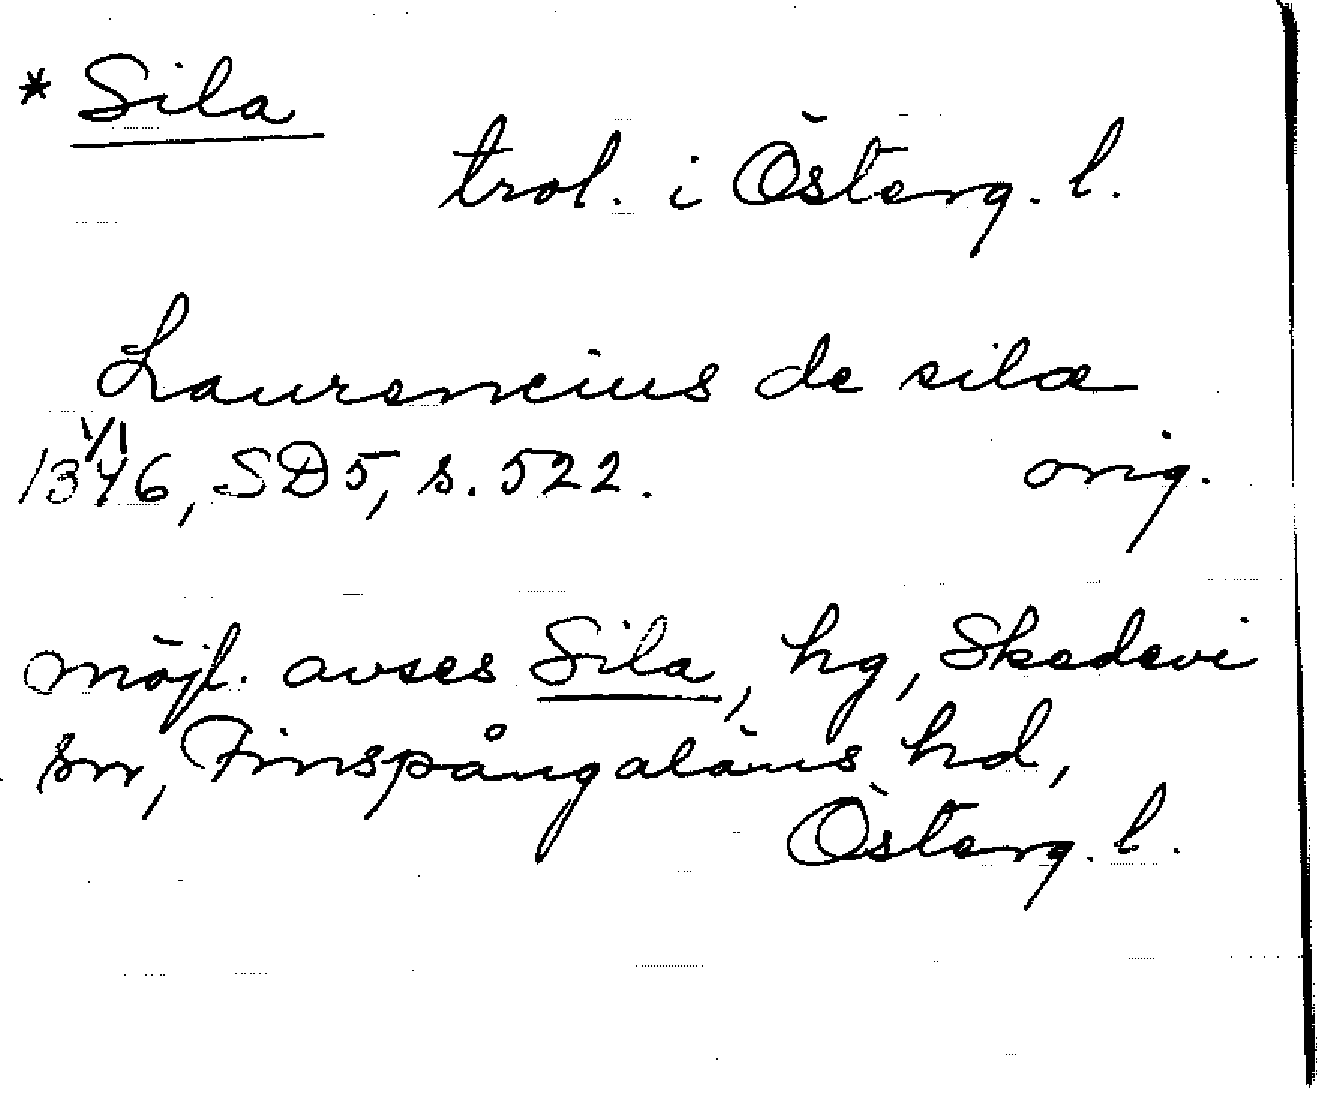 * Sila
trol. i Österg. l.
Laurencius de silæ
1346 1/1, SD5, s. 522. orig.
möjl. avses Sila, hg, Skedevi
sn, Finspångaläns hd,
Österg. l.